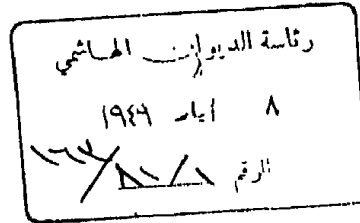 رئاسة الديوان الهاشمي
٨ ايار ١٩٤٩
الرقم ١٦٣/٨١/١